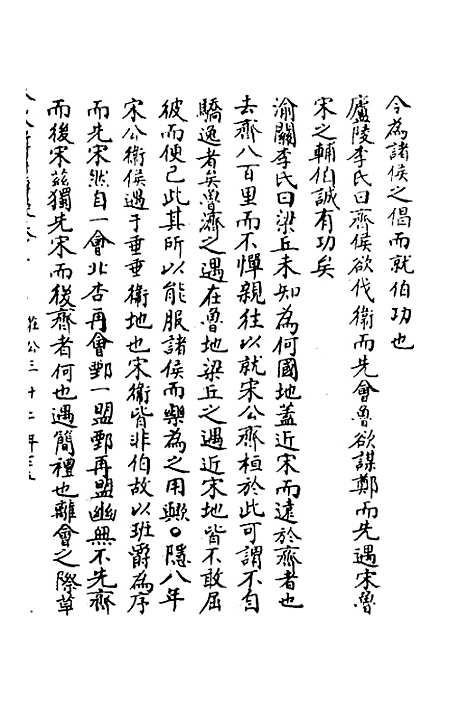 今為諸侯之倡而就伯功也
廬陵李氏曰齊侯欲伐衛而先會魯欲謀鄭而先遇宋魯
宋之輔伯誠有功矣
渝關李氏曰梁丘未知為何國地蓋近宋而遠於齊者也
去齊八百里而不憚親往以就宋公齊桓於此可謂不自
驕逸者矣魯濟之遇在魯地梁丘之遇近宋地皆不敢屈
彼而使己此其所以能服諸侯而樂為之用歟○隱八年
宋公衛侯遇于垂垂衛地也宋衛皆非伯故以班爵為序
而先宋然自一會北杏再會鄄一盟鄄再盟幽無不先齊
而後宋茲獨先宋而後齊者何也遇簡禮也離會之際草
莊公三十二年